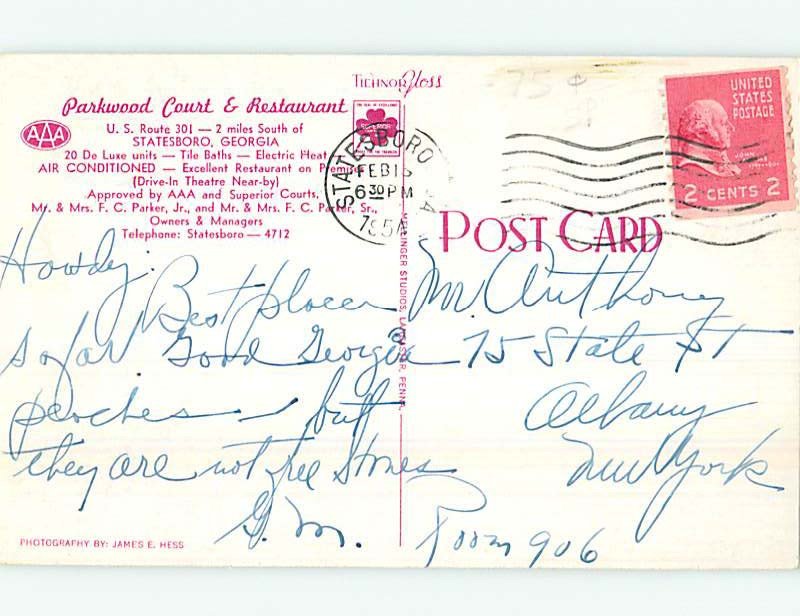 TICHNOR Gloss
75¢
Parkwood Court & Restaurant
AAA
U. S. Route 301 — 2 miles South of
STATESBORO, GEORGIA
20 De Luxe units — Tile Baths — Electric Heat
AIR CONDITIONED — Excellent Restaurant on Premises
(Drive-In Theatre Near-by)
Approved by AAA and Superior Courts,
Mr. & Mrs. F. C. Parker, Jr., and Mr. & Mrs. F. C. Parker, Sr.,
Owners & Managers
Telephone: Statesboro — 4712
SUPERIOR
STATESBORO GA
FEB 15
6 30 PM
195
UNITED
STATES
POSTAGE
JOHN
2 CENTS 2
POST CARD
MELLINGER STUDIOS, LANCASTER, PENNA.
Howdy:
Best places
so far. Good Georgia
peaches — but
they are not free stones
G. M.
Mr. Anthony
75 State St
Albany
New York
Room 906
PHOTOGRAPHY BY: JAMES E. HESS